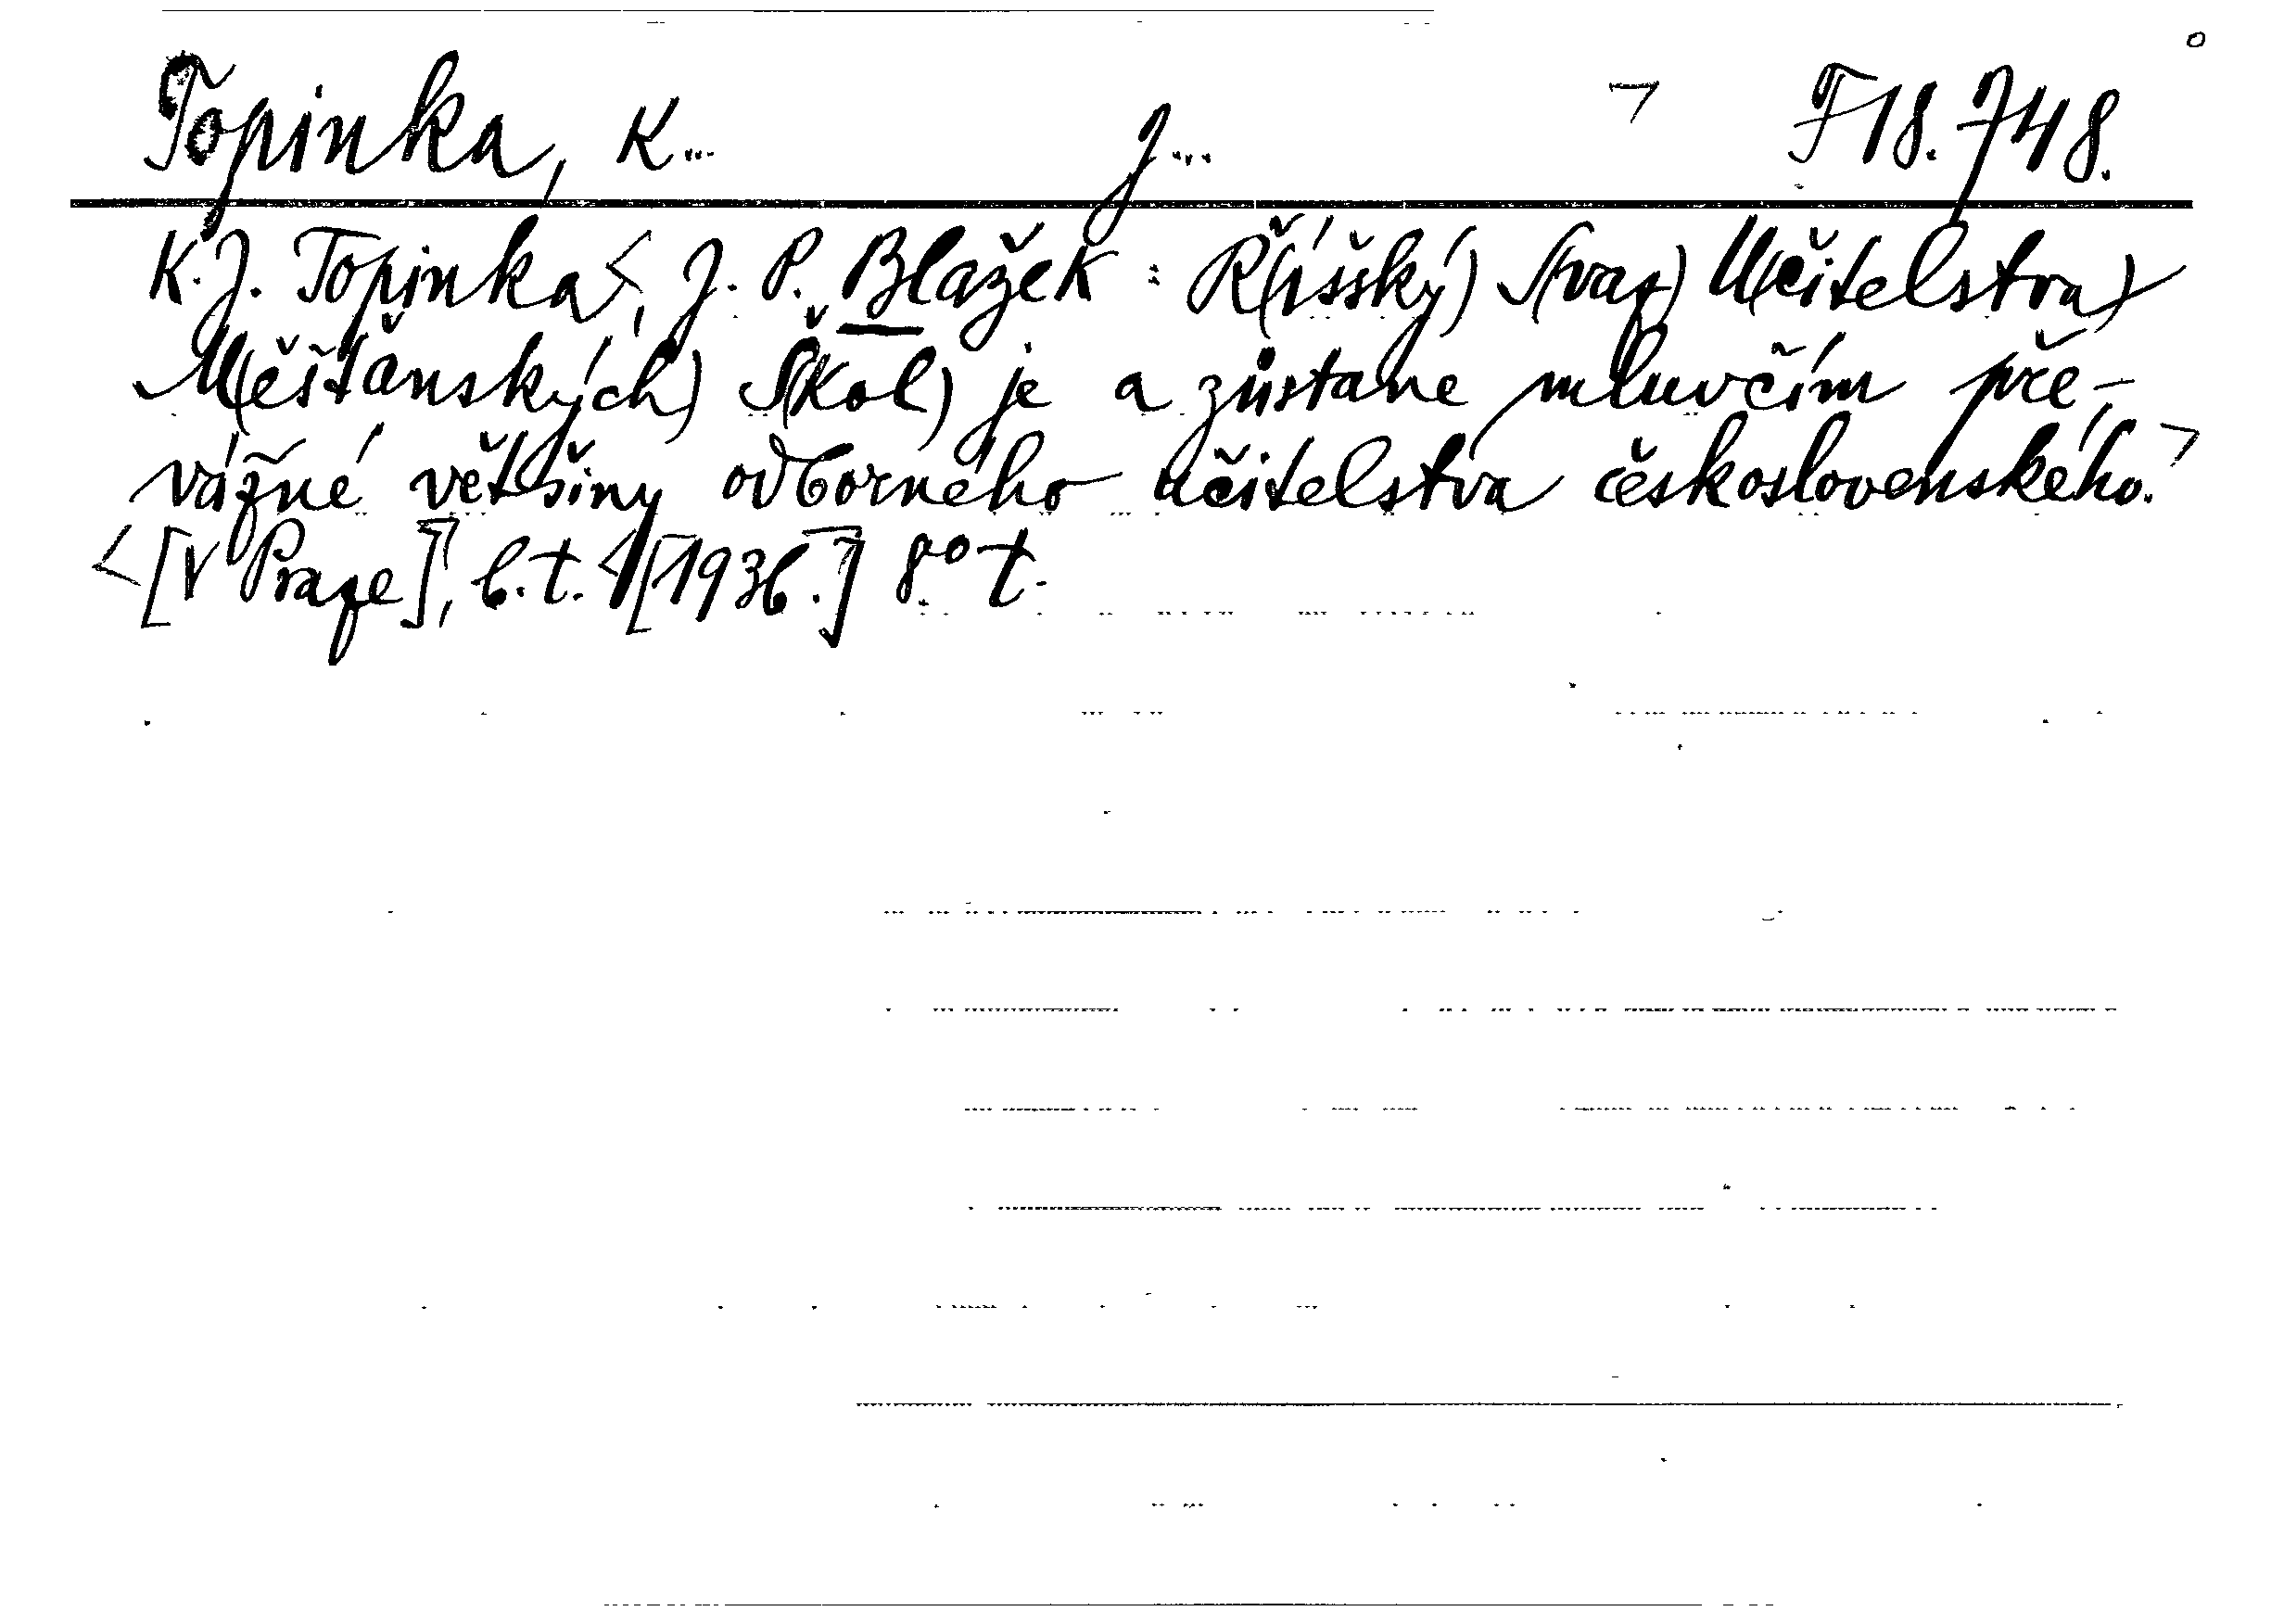 Topinka, K... J... ¬ F 18.748.
K. J. Topinka<, J. P. Blažek : Ř(íšský) S(vaz) U(čitelstva)
M(ěšťanských) Š(kol) je a zůstane mluvčím pře-
vážné většiny odborného učitelstva československého.¬
<[V Praze]¬, b. t. <[1936.] 8° t.